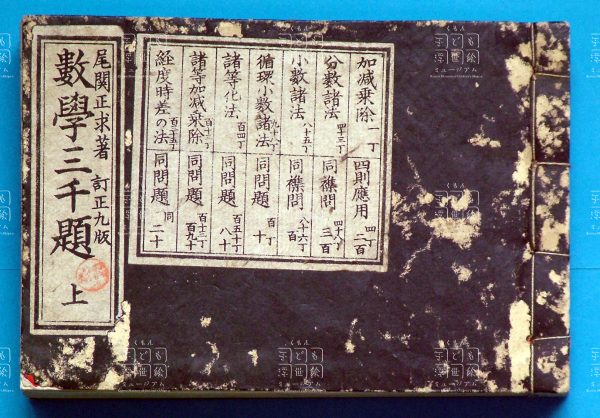 加減乗除 一丁
四則應用 四丁 二百
分數諸法 四十三丁
同襍問 四十八丁 三百
小數諸法 八十五丁
同襍問 八十六丁 百
循環小數諸法
同問題 百丁 十
諸等化法 百四丁
同問題 八十
諸等加減乗除 百十二丁
同問題
経度時差の法
同問題 同 二十
尾関正求著 訂正九版
數學三千題 上
くもん
子ども浮世絵
ミュージアム